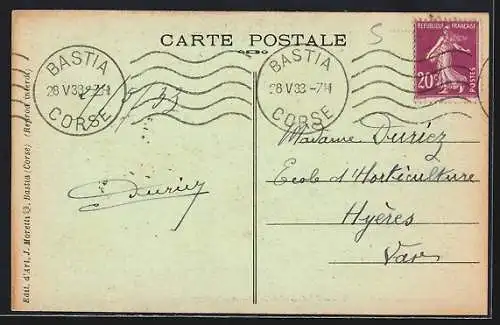 CARTE POSTALE
S
REPUBLIQUE FRANÇAISE
20c
POSTES
BASTIA
28 V 33 -7H
CORSE
BASTIA
28 V 33 -7H
CORSE
/5/33
Duriez
Madame Duriez
Ecole d'Horticulture
Hyères
Var
Edit. d'Art, J. Moretti, Bastia (Corse) (Reprod. interd.)